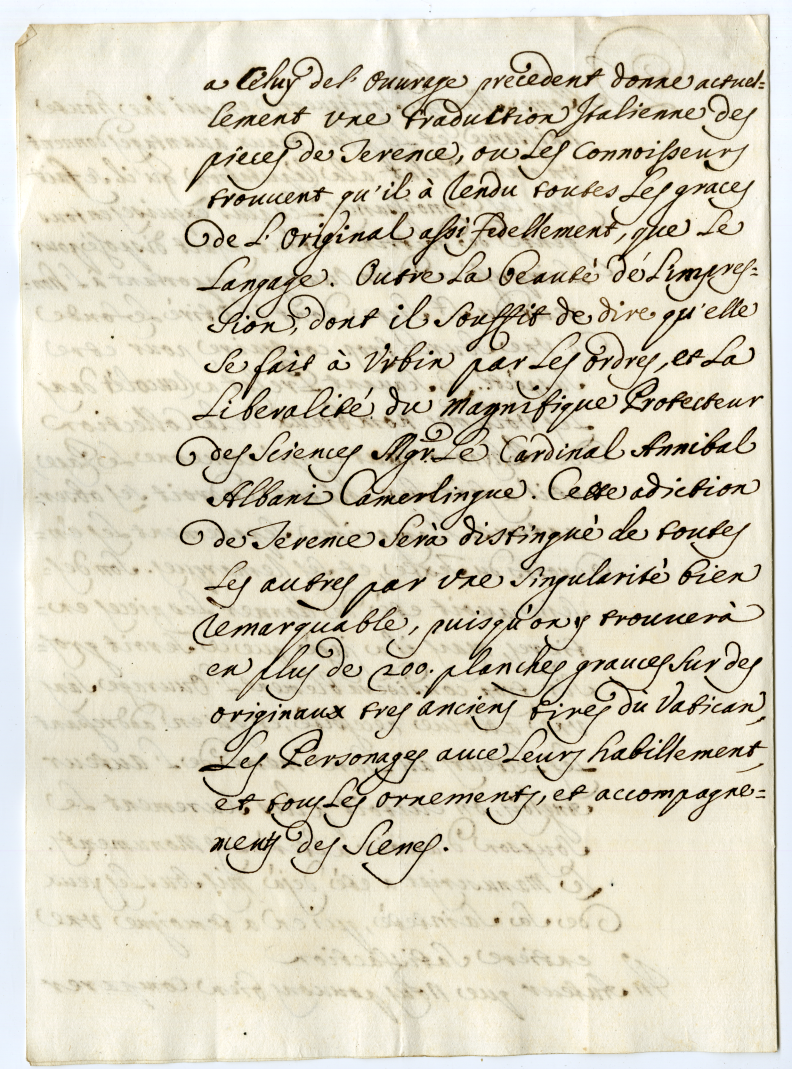 a Celuy de l' Ouurage precedent donne actuel=
lement vne traduction Italienne des
pieces de Terence, ou Les Connoisseurs
trouuent qu'il à rendu toutes Les graces
de L' Original assi Fidellement, que Le
Langage. Outre La beauté dé L'impres=
sion, dont il Souffit de dire qu'elle
se fait à Vrbin par Les ordres, et La
Liberalité du Magnifique Protecteur
des Sciences Mgr. Le Cardinal Annibal
Albani Camerlingue. Cette adiction
de Terence Serà distinguè de toutes
Les autres par vne Singularitè bien
remarquable, puisqu'on y trouuerà
en plus de 200. planches grauces Sur des
originaux tres anciens tires du Vatican,
Les Personages auce Leurs habillement,
et tous Les ornements, et accompagne=
ments des Scenes.